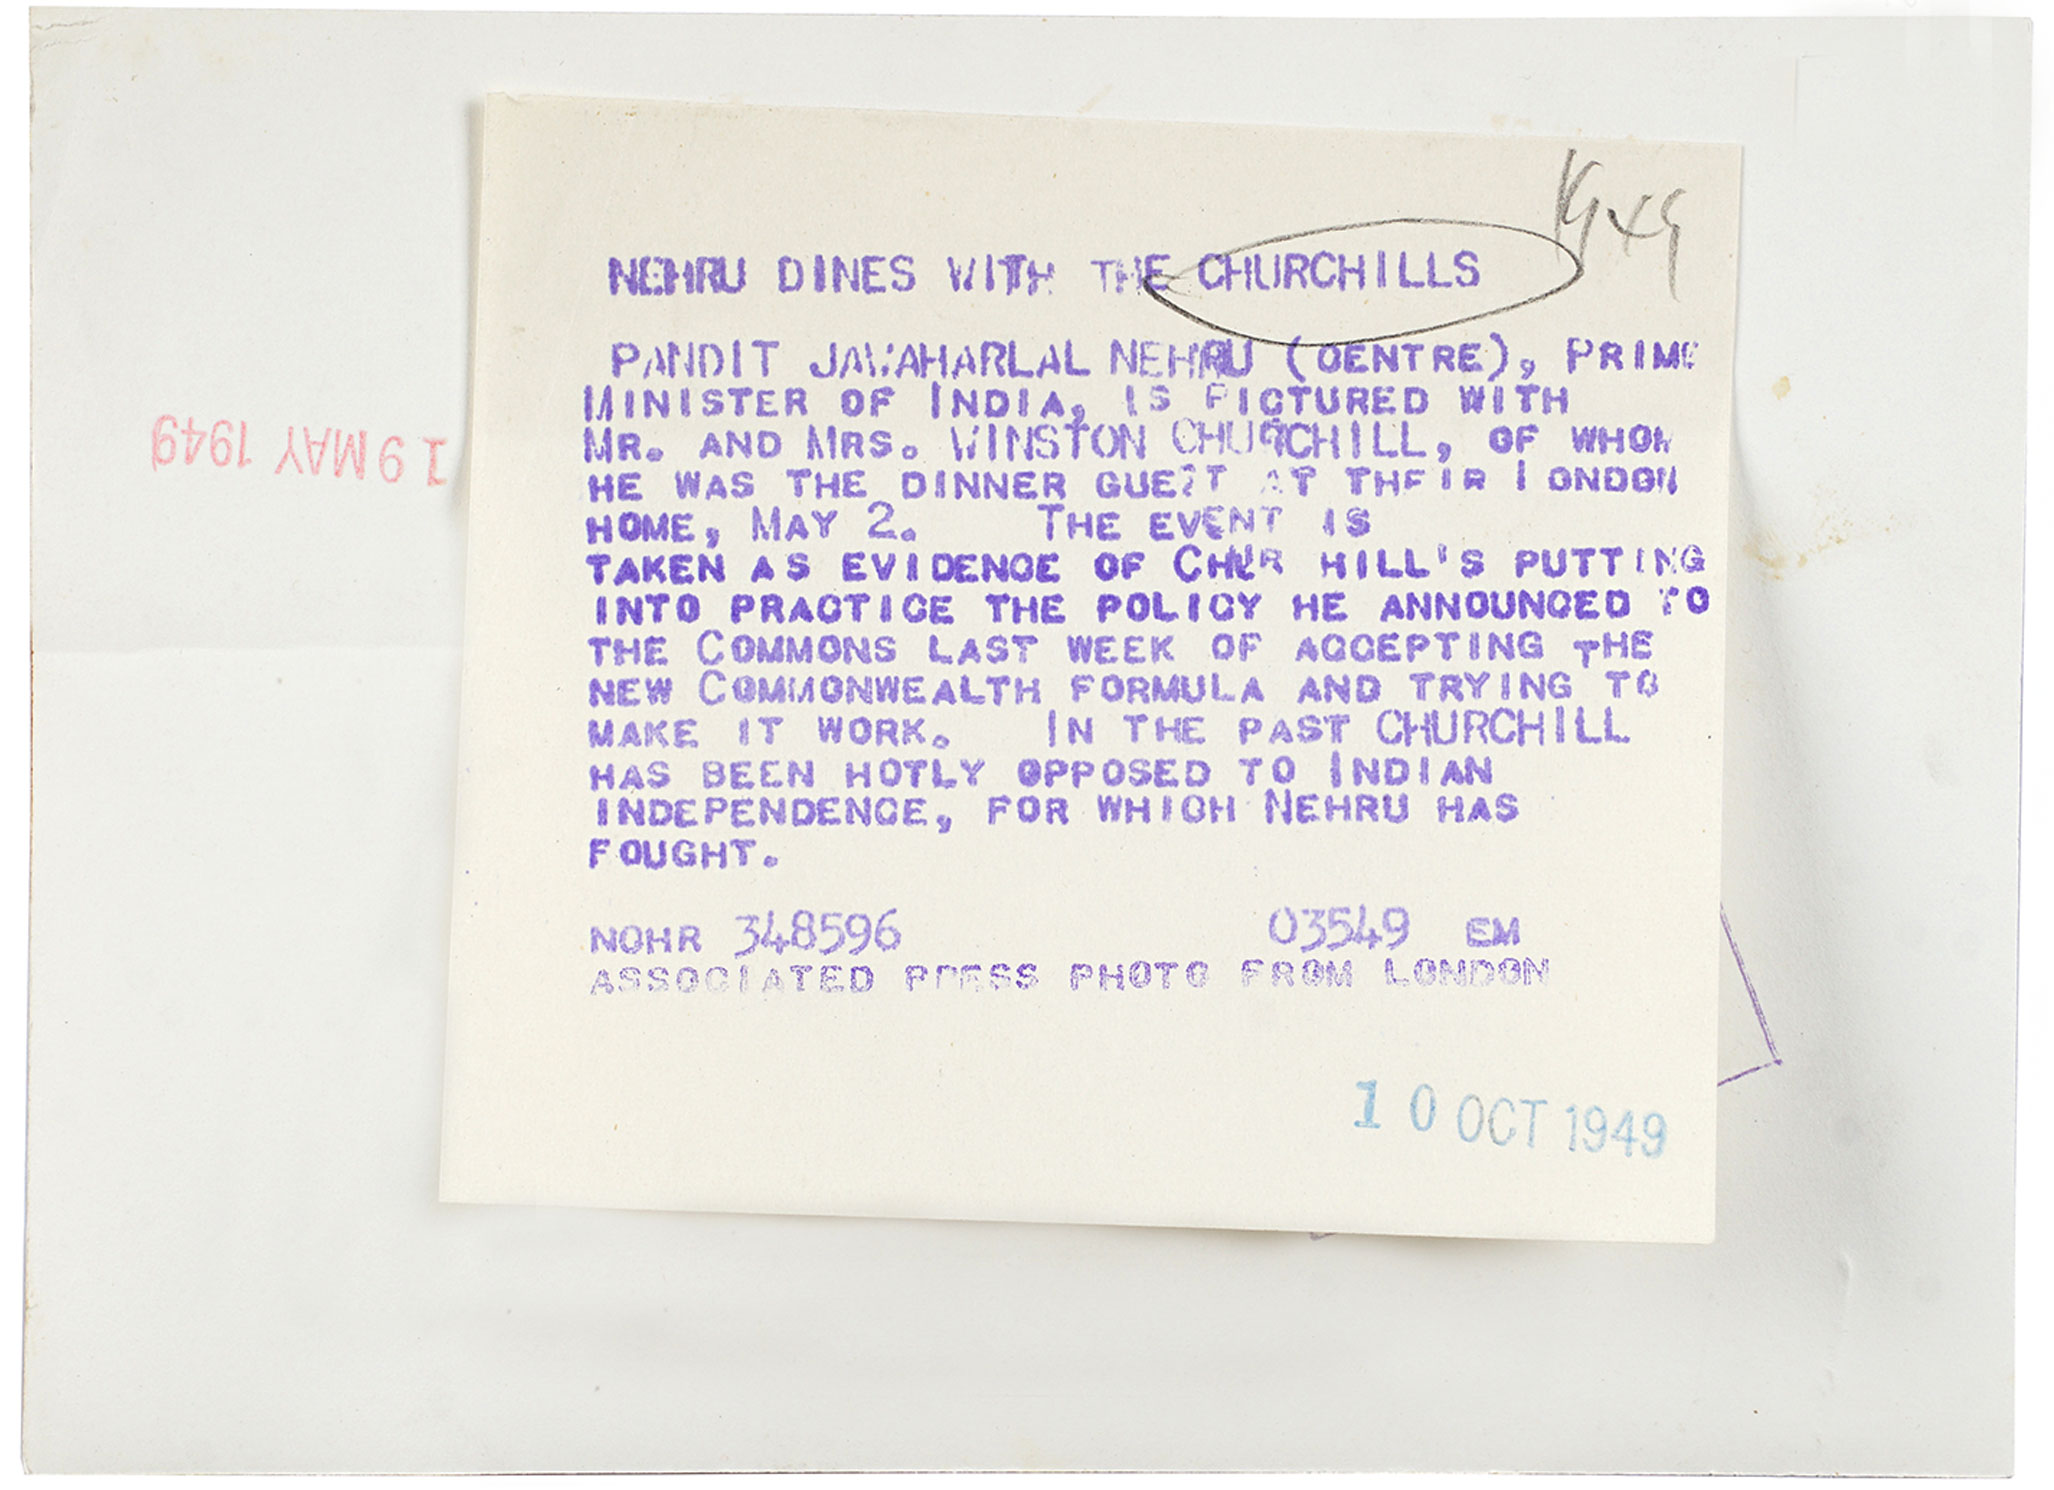 NEHRU DINES WITH THE CHURCHILLS
PANDIT JAWAHARLAL NEHRU (CENTRE), PRIME
MINISTER OF INDIA, IS PICTURED WITH
MR. AND MRS. WINSTON CHURCHILL, OF WHOM
HE WAS THE DINNER GUEST AT THEIR LONDON
HOME, MAY 2. THE EVENT IS
TAKEN AS EVIDENCE OF CHURCHILL'S PUTTING
INTO PRACTICE THE POLICY HE ANNOUNCED TO
THE COMMONS LAST WEEK OF ACCEPTING THE
NEW COMMONWEALTH FORMULA AND TRYING TO
MAKE IT WORK. IN THE PAST CHURCHILL
HAS BEEN HOTLY OPPOSED TO INDIAN
INDEPENDENCE, FOR WHICH NEHRU HAS
FOUGHT.
NOHR 348596 03549 EM
ASSOCIATED PRESS PHOTO FROM LONDON
10 OCT 1949
19 MAY 1949